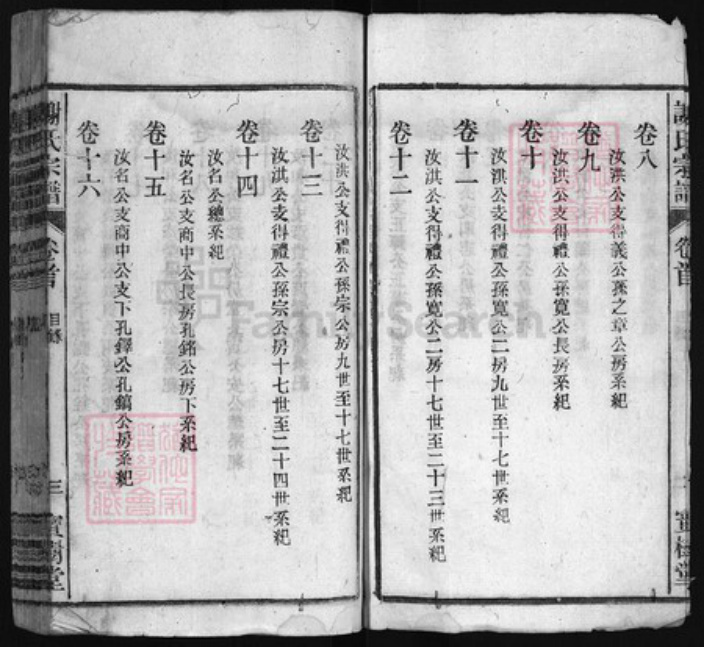 謝氏宗譜 卷首
寶樹堂
卷八
汝洪公支得義公孫之章公房系紀
卷九
汝洪公支得禮公孫寬公長房系紀
卷十
汝洪公支得禮公孫寬公二房九世至十七世系紀
卷十一
汝洪公支得禮公孫寬公二房十七世至二十三世系紀
卷十二
汝洪公支得禮公孫宗公房九世至十七世系紀
卷十三
汝洪公支得禮公孫宗公房十七世至二十四世系紀
卷十四
汝名公總系紀
卷十五
汝名公支商中公長房孔銘公房下系紀
卷十六
汝名公支商中公支下孔鐸公孔鎬公房系紀
謝氏宗譜 卷首 目錄 三 寶樹堂
FamilySearch